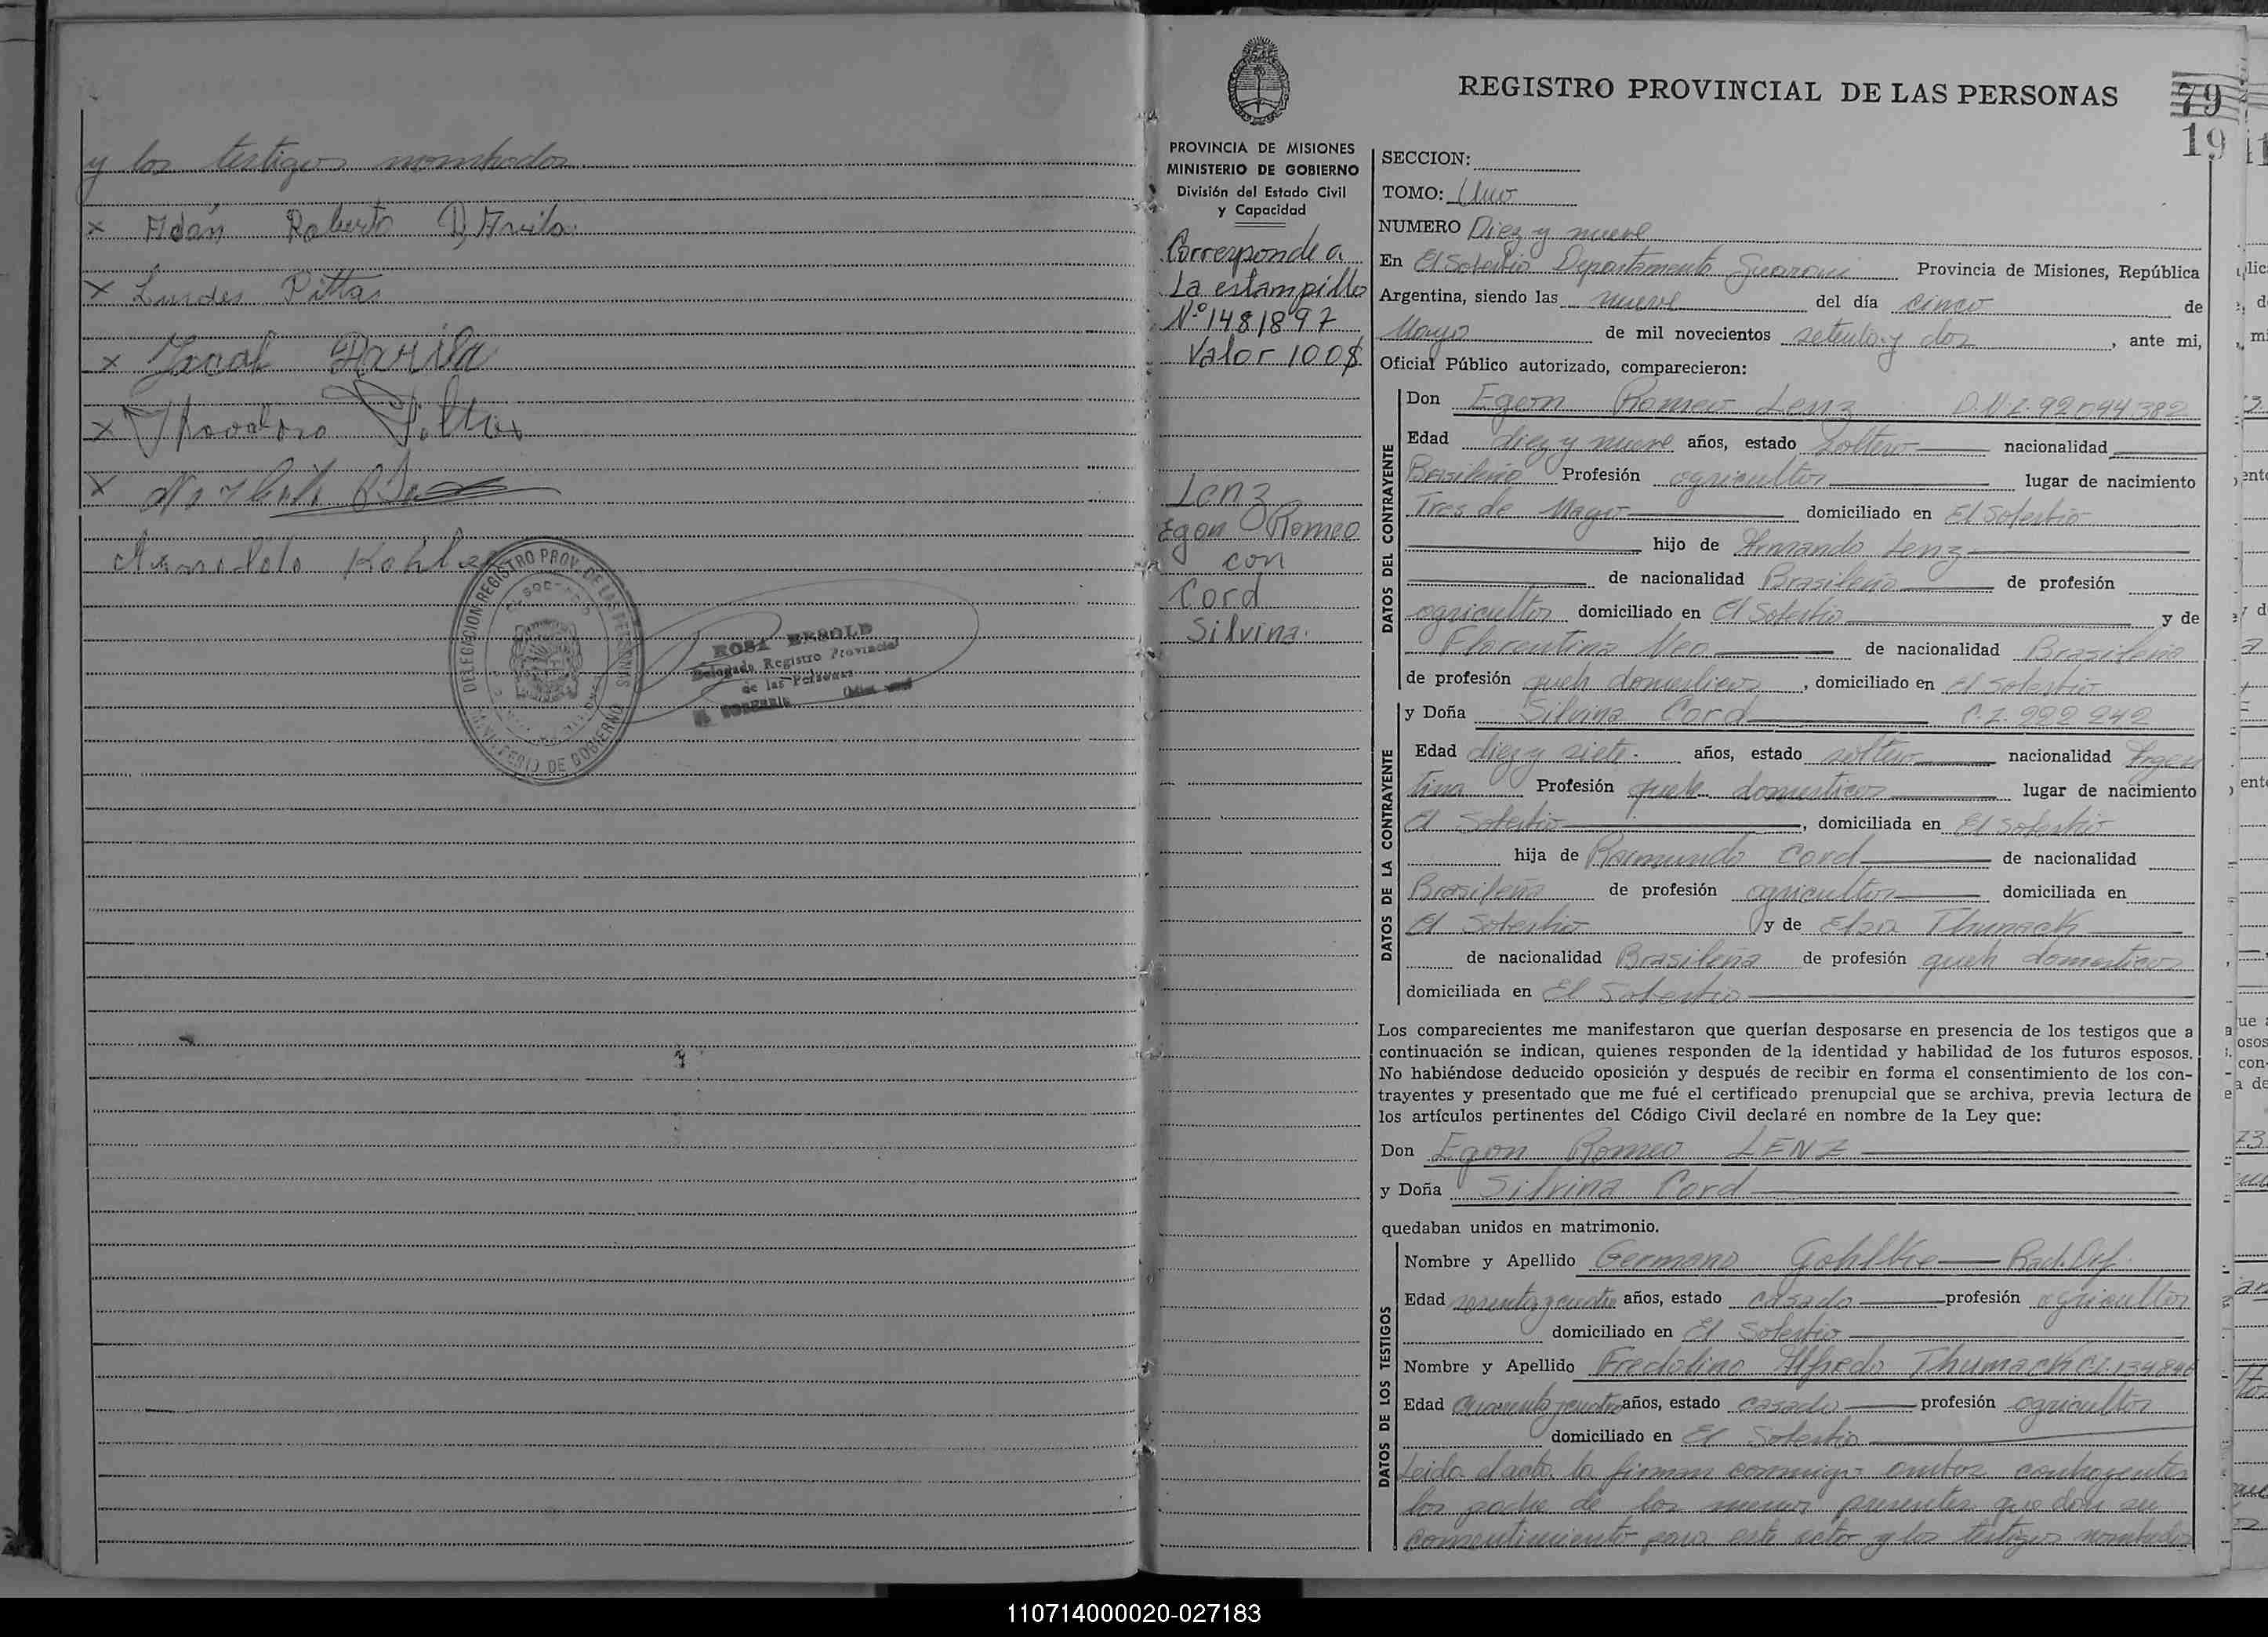 y los testigos nombrados
x Adán Roberto D Avila.
x Lurdes Pittas
x Davila
x
x
Kohler
DELEGACION REGISTRO PROV. DE LAS PERSONAS
MINISTERIO DE GOBIERNO
ROSA BESOLD
Delegada Registro Provincial
de las Personas
EL SOBERBIO
PROVINCIA DE MISIONES
MINISTERIO DE GOBIERNO
División del Estado Civil
y Capacidad
Corresponde a
La estampilla
Nº 1481897
Valor 100$
Lenz
Egon Romeo
con
Cord
Silvina.
REGISTRO PROVINCIAL DE LAS PERSONAS
79
19
SECCION:
TOMO: Uno
NUMERO Diez y nueve
En El Soberbio Departamento Guarani Provincia de Misiones, República
Argentina, siendo las nueve del día cinco de
Mayo de mil novecientos setenta y dos, ante mi,
Oficial Público autorizado, comparecieron:
DATOS DEL CONTRAYENTE
Don Egon Romeo Lenz D.N.I. 92.594.382
Edad diez y nueve años, estado soltero nacionalidad
Brasileño Profesión agricultor lugar de nacimiento
Tres de Mayo domiciliado en El Soberbio
hijo de Armando Lenz
de nacionalidad Brasileña de profesión
agricultor domiciliado en El Soberbio y de
Florentina de nacionalidad Brasileña
de profesión queh domesticos, domiciliado en El Soberbio
DATOS DE LA CONTRAYENTE
y Doña Silvina Cord C.I. 222 242
Edad diez y siete. años, estado soltera nacionalidad Argen
tina Profesión queh. domesticos lugar de nacimiento
El Soberbio, domiciliada en El Soberbio
hija de Raimundo Cord de nacionalidad
Brasileña de profesión agricultor domiciliada en
El Soberbio y de Elsa Thumack
de nacionalidad Brasileña de profesión queh domesticos
domiciliada en El Soberbio
Los comparecientes me manifestaron que querían desposarse en presencia de los testigos que a
continuación se indican, quienes responden de la identidad y habilidad de los futuros esposos.
No habiéndose deducido oposición y después de recibir en forma el consentimiento de los con-
trayentes y presentado que me fué el certificado prenupcial que se archiva, previa lectura de
los artículos pertinentes del Código Civil declaré en nombre de la Ley que:
Don Egon Romeo LENZ
y Doña Silvina Cord
quedaban unidos en matrimonio.
DATOS DE LOS TESTIGOS
Nombre y Apellido Germano Gohlke
Edad años, estado casado profesión agricultor
domiciliado en El Soberbio
Nombre y Apellido Fredolino Alfredo Thumack C.I. 134846
Edad cuarenta y cuatro años, estado casado profesión agricultor
domiciliado en El Soberbio
Leida el acta la firman conmigo ambos contrayentes
los padre de los menor presentes que dan su
consentimiento para este acto y los testigos nombrados
110714000020-027183